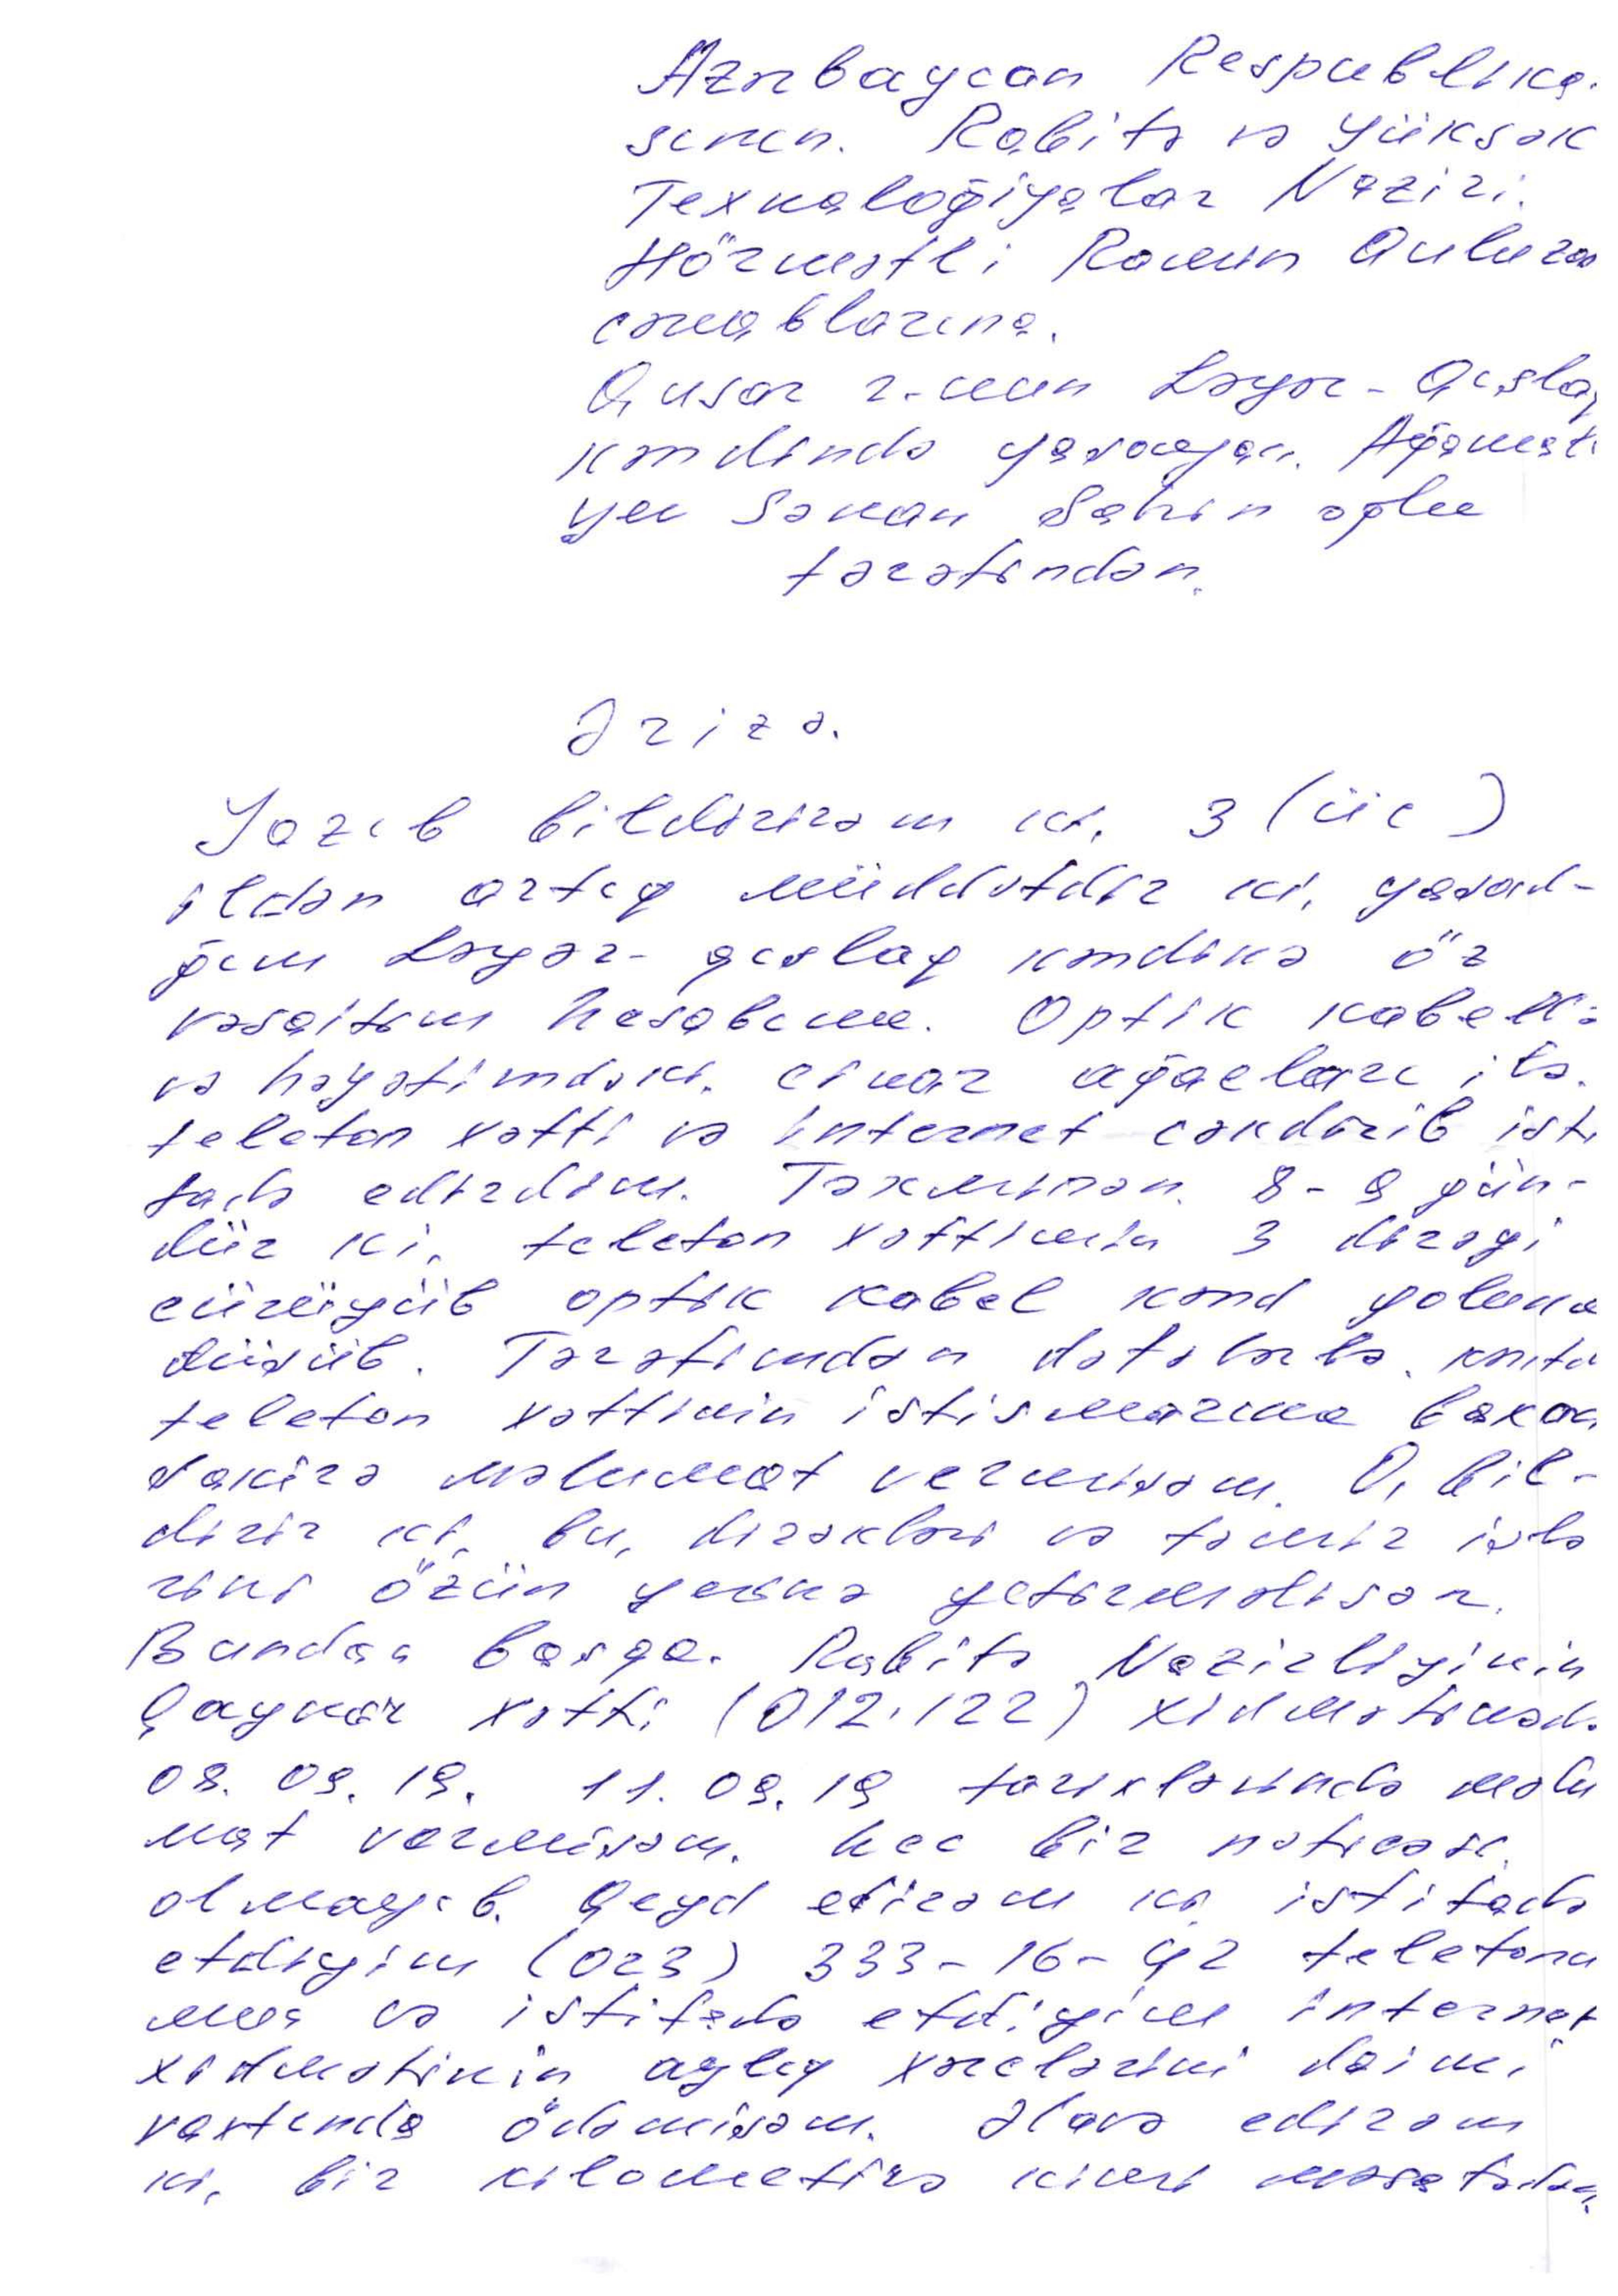 Azərbaycan Respublika-
sının. Rabitə və Yüksək
Texnaloğiyalar Naziri.
Hörmətli Ramin Quluzadə
cənablarına.
Qusar r-nun Ləgər-Qışlaq
kəndində yaşayan. Ağaməti
yev Sənan Şahin oğlu
tərəfindən.
Ərizə.
Yazıb bildirirəm ki, 3 (üç)
ildən artıq müddətdir ki, yaşad-
ğım Ləgər-qışlaq kəndinə öz
vəsaitim hesabına. Optik kabellə
və həyətimdəki. çinar ağacları ilə.
telefon xətti və internet çəkdirib isti
fadə edirdim. Təxminən. 8-9 gün-
dür ki, telefon xəttimin 3 dirəyi
çürüyüb optik kabel kənd yoluna
düşüb. Tərəfimdən dəfələrlə.
telefon xəttinin istismarına baxan
şəxirə məlumat vermişəm. O, bil-
dirir ki, bu, dirəkləri və təmir işlə
rini özün yerinə yetirməlisən.
Bundan başqa. Rabitə Nazirliyinin
Qaynar xətti (012.122) xidmətinədə
09.09.19. 11.09.19 tarixlərində məlu
mat vermişəm. heç bir nəticəsi
olmayıb. Qeyd edirəm ki istifadə
etdiyim (023) 333-16-42 telefonu
ma və istifadə etdiyim internet
xidmətinin aylıq xərclərini daimi
vaxtında ödəmişəm. Əlavə edirəm
ki, bir kilometirə kimi məsafədən